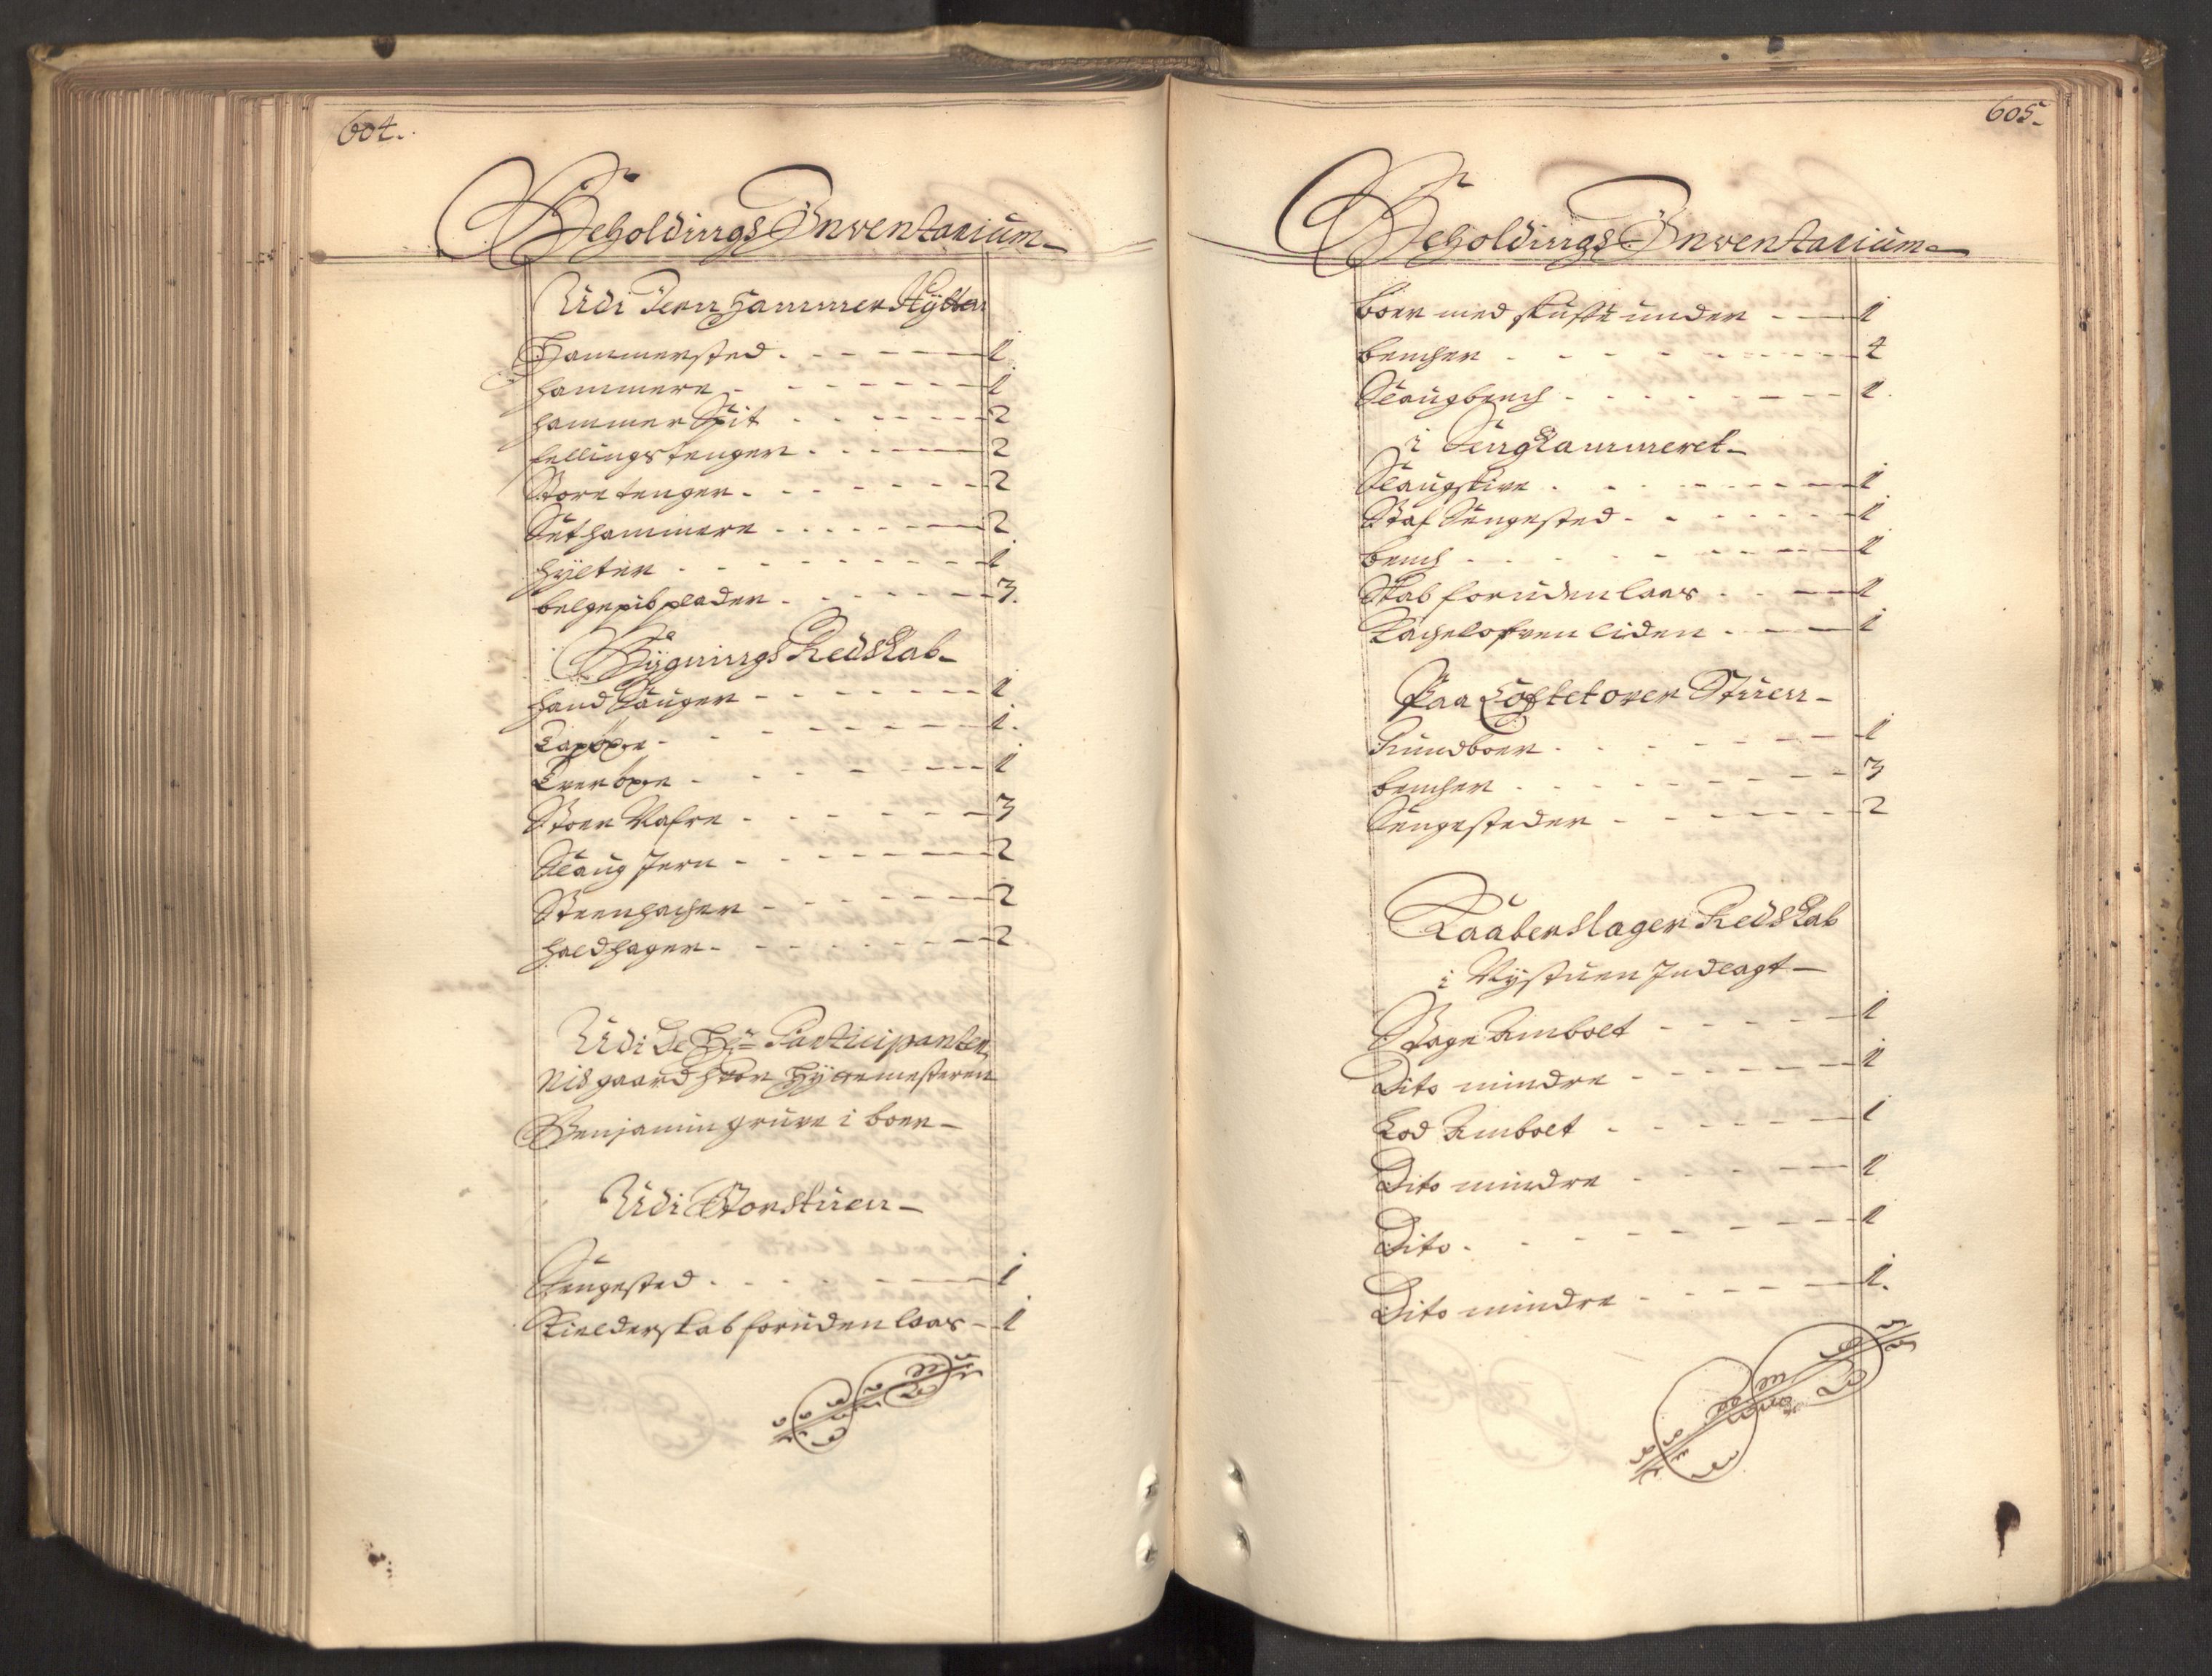 604.
Beholdings Inventarium
Udi Jern Hammer Hytten
Hammersted 1
hammere 1
hammer Spit 2
fellingstenger 2
Store tenger 2
Sethammere 2
hylter 1
belgepibplader 3.
Bygnings Redskab
hand Sauger 1
Lapöxe 1.
Tveröxe 1
Stoer Nafre 3
Slaug Jern 2
Steenhacher 2
haldhager 2
Udi De Hr: Participanter
nis gaard hvor Hyttemesteren
Benjamin gruve i boer
Udi Storstuen
Sengested 1
Kielderskab foruden laas 1
605.
Beholdings Inventarium
boer med skuffe under 1
bencher 4
Slaugbench 1.
i Sengkammeret
Slaugskive 1
Staf Sengested 1
bench 1
Skab foruden laas 1
Kachelofven liden 1
Paa Loftet over Stuen
Rundboer 1
bencher 3
Sengesteder 2
Kaaberslager Redskab
i Nystuen Indlagt
Stage Ambolt 1
Dito mindre 1
Lod Ambolt 1
Dito mindre 1
Dito 1
Dito mindre 1.